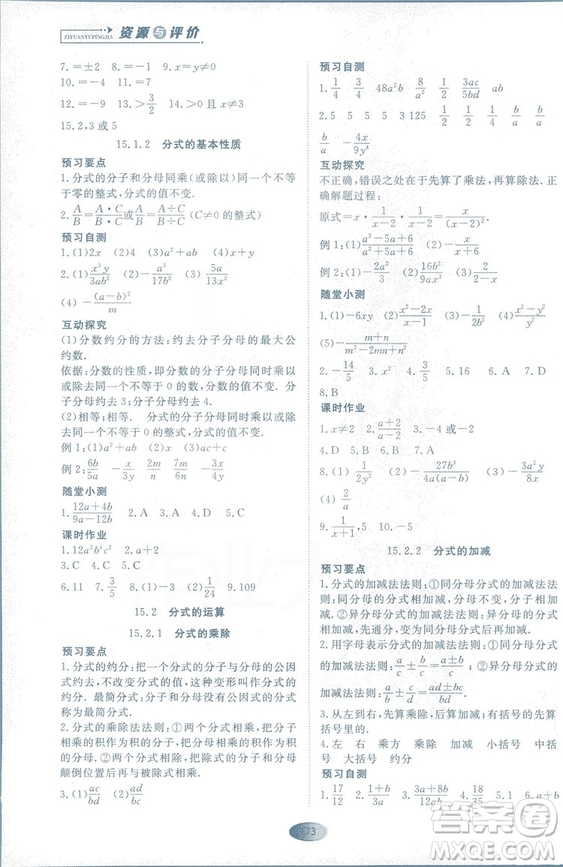 ZIYUANYUPINGJIA
资源与评价
7.=±2 8.=-1 9.x=y≠0
12.=0 13.>3/2 14.x≠0
15.2,3或5
15.1.2 分式的基本性质
预习要点
1.分式的分子和分母同乘(或除以)同一个不等
于零的整式,分式的值不变.
2.A/B=A·C/B·C A/B=A÷C/B÷C(C≠0的整式)
预习自测
1.(1)2x (2)4 (3)a²+ab (4)x
2.(1)x³y/3ab² (2)-a²/17b² (3)5a/13x²
(4)-(a-b)²/m
互动探究
(1)分数约分的方法:约去分子分母的最大公
约数.
依据:分数的性质,即分数的分子分母同时乘以
或除以一个不等于零的数,分数的值不变.分子
分母约去3;分子分母约去4.
(2)相等;相等. 分式的分子分母同时乘以或
除以一个不等于0的整式,分式的值不变.
例1:(1)a²+ab (2)x
例2:6b/5a -x/3y 2m/n -7m/6n 3x/4y
随堂小测
1.12a+4b/9a-12b 2.A 3.A 4.A 5.A
课时作业
1.12a²b³c 2.A
3.C 4.C 5.C
6.11 7.3/5 8.(1)-2 (2)1/24 9.109
15.2 分式的运算
15.2.1 分式的乘除
预习要点
1.分式的约分:把一个分式的分子与分母的公因
式约去,不改变分式的值,这种变形叫做分式的
约分.最简分式:分子与分母没有公因式的分式,
叫做最简分式.
2.分式的乘除法法则:①两个分式相乘,把分子
相乘的积作为积的分子,把分母相乘的积作为积
的分母.②两个分式相除,将除式的分子和分母
颠倒位置后,与被除式相乘.
3.(1)ac/bd (2)ad/bc
预习自测
1.1/4 3/4 48a²b 8/a² a²/4 b/2 3ac/5bd a/b
2.5 5 5 3 3 125 1/2 b/a b/a b/a
b/a -4x/9y⁴
互动探究
不正确,错误之处在于先算了乘法,再算除法.正
确解题过程:
原式=x·1/x-2·1/x-2=x/(x-2)².
例1:(1)a²-5a+6/a²+5a+6 (2)-x/x+6
例2:(1)-a²/3c² (2)16b²/9ac (3)-1/2x²
随堂小测
1.(1)-6xy (2)x²-2x/x+1 (3)-x²/2 (4)x²-x
(5)-m+n/m-n
2.-14/5 3.x/2 4.4/5 5.16 6.-x/y 7.D
8.B
课时作业
1.x≠2 2.a+2/a-2 3.-4或-2
4.D 5.B 6.B 7.B
8.(1)x+y/y (2)-27b³/4a (3)3x²y/4
(4)2/a
9.-1/2
15.2.2 分式的加减
预习要点
1.分式的加减法法则:①同分母分式的加减法
法则:分母不变,分子相加减.②异分母分式的
加减法法则:异分母分式的加减,
先通分,变为同分母分式,再加减.
2.用字母表示分式的加减法法则:①同分母分式
加减法法则:a/c±b/c=a±b/c.②异分母分式的加
减法法则:a/b±c/d=ad±bc/bd.
3.从左到右,先乘除,后算加减,有括号的先算
括号里的.
4.左 右 乘方 乘除 加减 小括号 中括
号 大括号 约分
预习自测
1.17/12 2.1/m 3.12+a/3a 4.3a+8/12a
173
答案圈